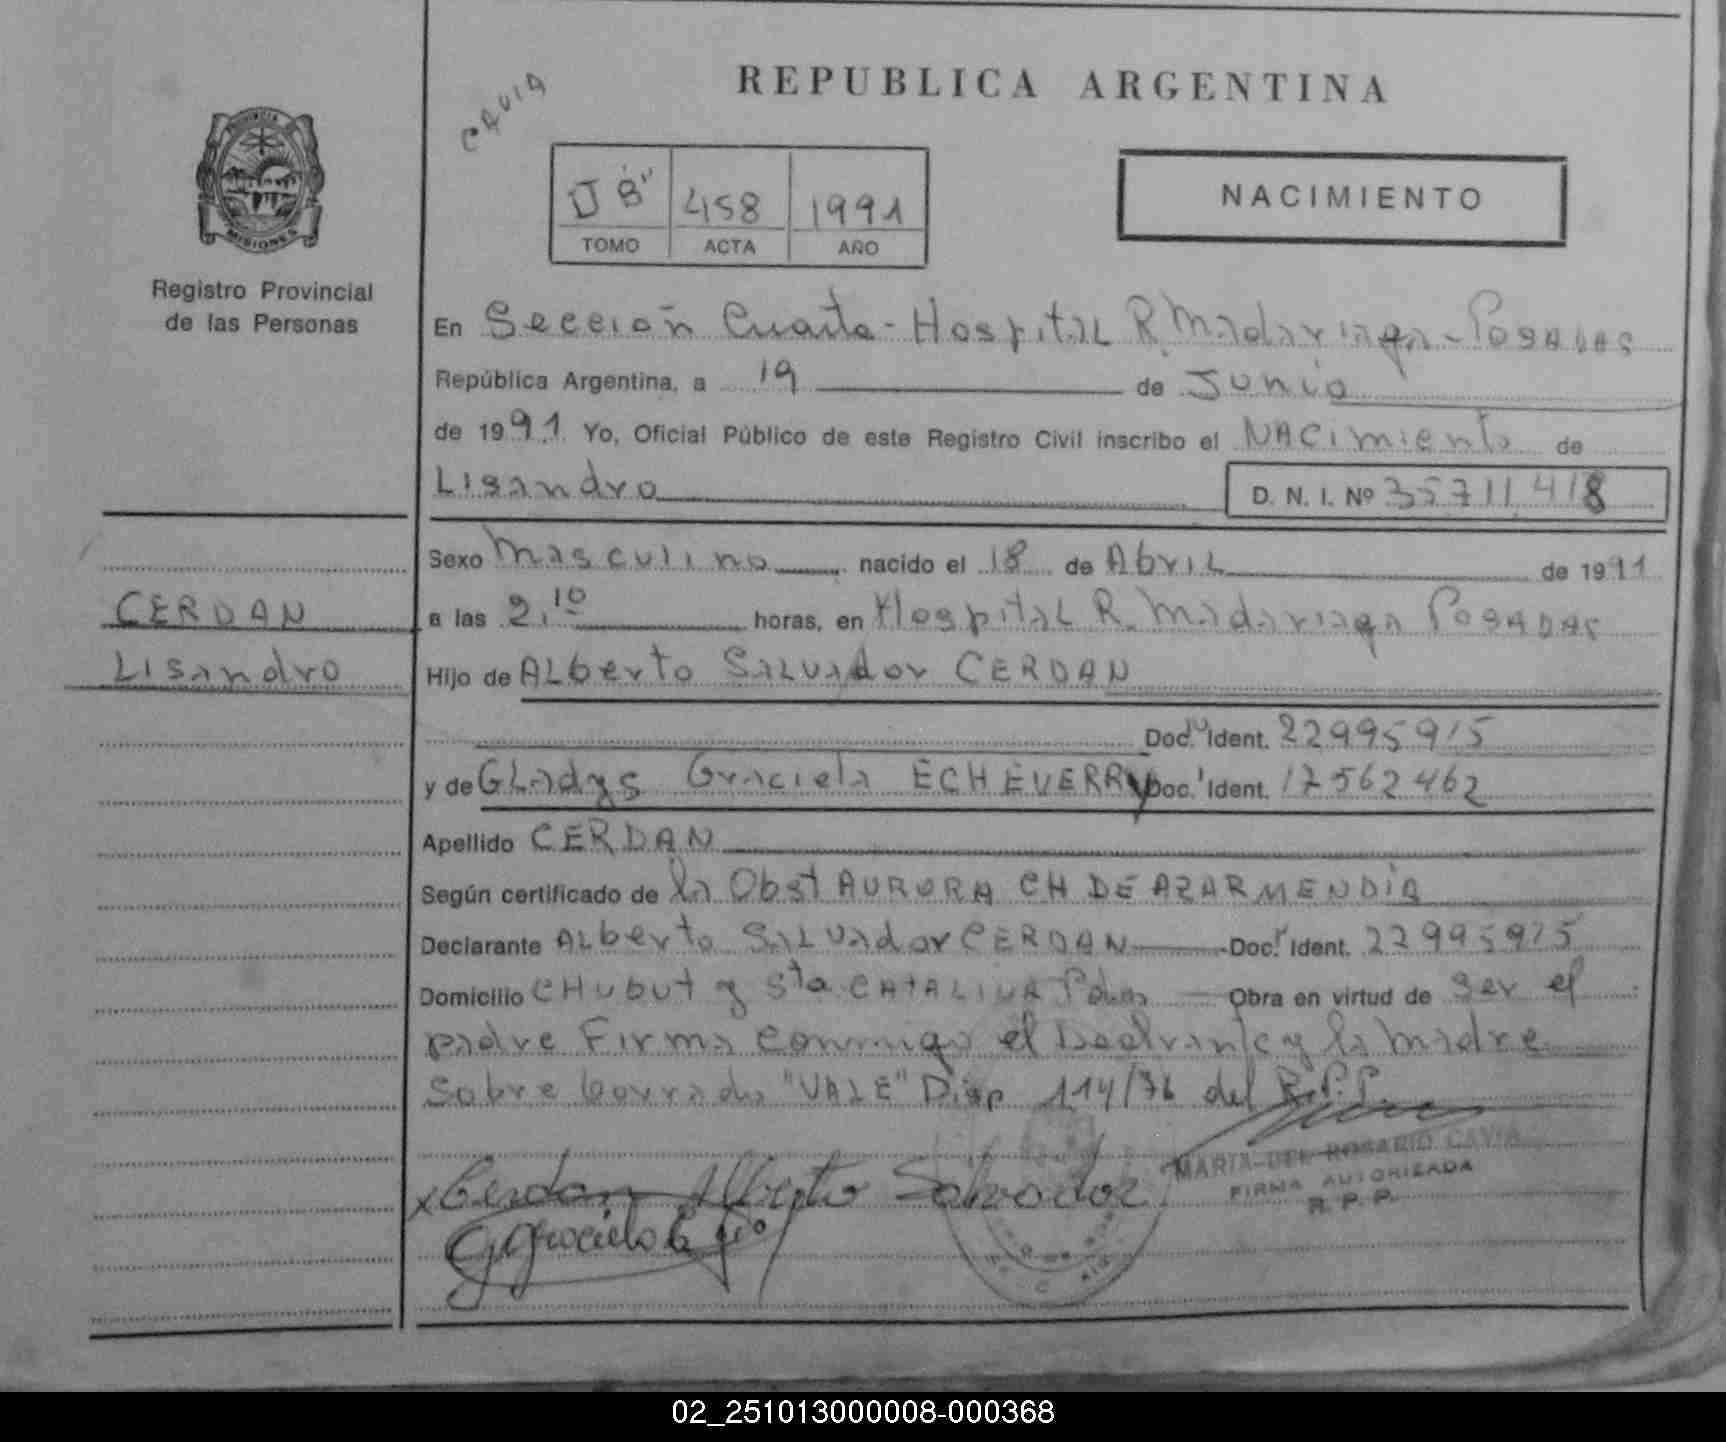 CAVIA
REPUBLICA ARGENTINA
U "B" 458 1991
TOMO ACTA AÑO
NACIMIENTO
PROVINCIA
MISIONES
Registro Provincial
de las Personas
En Sección Cuarta - Hospital R. Madariaga - POSADAS
República Argentina, a 19 de Junio
de 1991 Yo, Oficial Público de este Registro Civil inscribo el NACimiento de
Lisandro D. N. I. Nº 35711.418
Sexo Masculino nacido el 18 de Abril de 1991
CERDAN
a las 2,10 horas, en Hospital R. Madariaga POSADAS
Lisandro
Hijo de ALberto SALvador CERDAN
Doc. Ident. 22995915
y de GLadys Graciela ECHEVERRY Doc. Ident. 17562462
Apellido CERDAN
Según certificado de la Obst AURORA CH DE AZARMENDIA
Declarante ALberto SALvador CERDAN Doc. Ident. 22995915
Domicilio CHubut y Sta CATALINA Pdas Obra en virtud de ser el
padre Firma conmigo el Declrante y la madre
Sobre borrado "VALE" Disp 114/76 del R.P.P.
MARIA DEL ROSARIO CAVIA
FIRMA AUTORIZADA
R. P. P.
x Cerdan Alberto Salvador
02_251013000008-000368